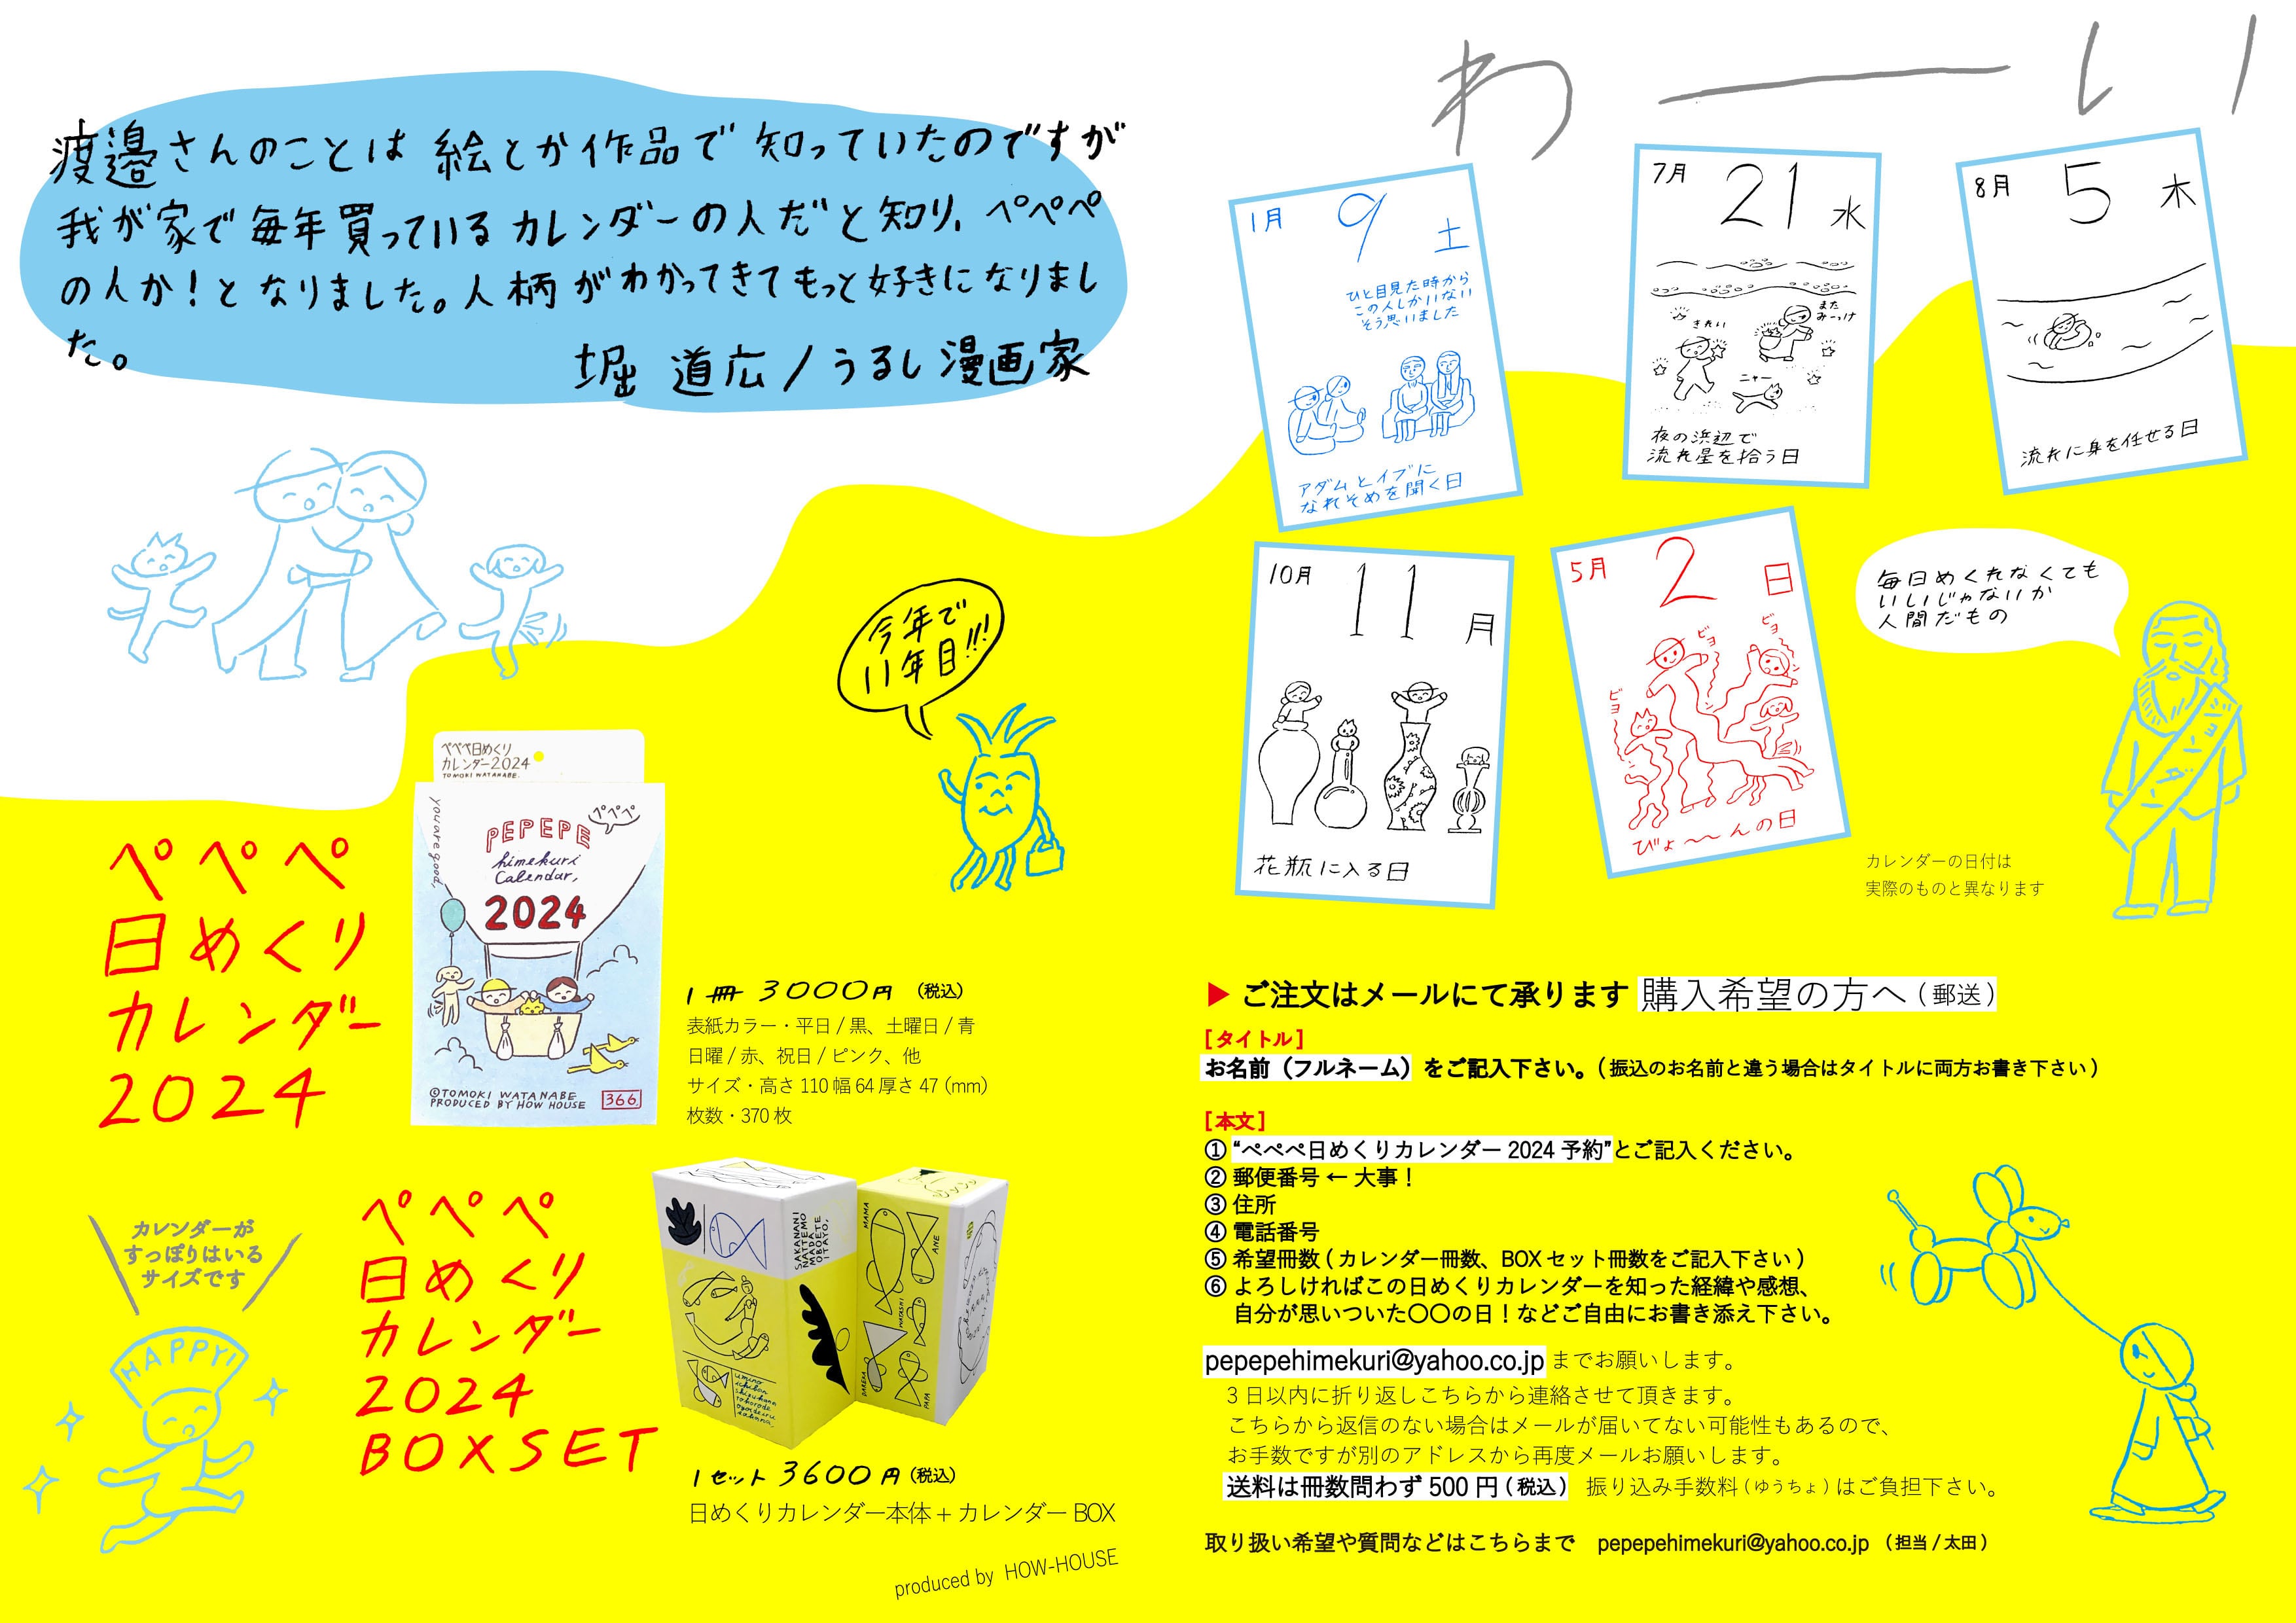 渡邉さんのことは 絵とか作品で 知っていたのですが
我が家で毎年買っているカレンダーの人だと知り、ペペペ
の人か!となりました。人柄がわかってきてもっと好きになりまし
た。
堀 道広/うるし漫画家
わーい
1月 9 土
ひと目見た時から
この人しかいない
そう思いました
アダムとイブに
なれそめを聞く日
7月 21 水
きれい
また
みーっけ
ニャー
夜の浜辺で
流れ星を拾う日
8月 5 木
流れに身を任せる日
10月 11 月
花瓶に入る日
5月 2 日
ビョーン
ビョーン
ビョー
びょ〜〜んの日
毎日めくれなくても
いいじゃないか
人間だもの
カレンダーの日付は
実際のものと異なります
今年で
11年目!!!
ペペペ
日めくり
カレンダー
2024
ペペペ日めくり
カレンダー2024
TOMOKI WATANABE.
you are good,
ペペペ
PEPEPE
himekuri
Calendar,
2024
©TOMOKI WATANABE
PRODUCED BY HOW HOUSE
366
1冊 3000円 (税込)
表紙カラー・平日/黒、土曜日/青
日曜/赤、祝日/ピンク、他
サイズ・高さ110幅64厚さ47(mm)
枚数・370枚
カレンダーが
すっぽりはいる
サイズです
HAPPY!
ペペペ
日めくり
カレンダー
2024
BOXSET
SAKANANI
NATTEMO
MADA
OBOETE
ITAYO,
umino
ichiban
shizukana
tokorode
MAMA
ANE
WATASHI
DAREKA
PAPA
1セット 3600円(税込)
日めくりカレンダー本体+カレンダーBOX
produced by HOW-HOUSE
▶ ご注文はメールにて承ります 購入希望の方へ(郵送)
[タイトル]
お名前(フルネーム)をご記入下さい。(振込のお名前と違う場合はタイトルに両方お書き下さい)
[本文]
① “ペペペ日めくりカレンダー2024予約”とご記入ください。
② 郵便番号 ← 大事!
③ 住所
④ 電話番号
⑤ 希望冊数(カレンダー冊数、BOXセット冊数をご記入下さい)
⑥ よろしければこの日めくりカレンダーを知った経緯や感想、
自分が思いついた〇〇の日!などご自由にお書き添え下さい。
pepepehimekuri@yahoo.co.jp までお願いします。
3日以内に折り返しこちらから連絡させて頂きます。
こちらから返信のない場合はメールが届いてない可能性もあるので、
お手数ですが別のアドレスから再度メールお願いします。
送料は冊数問わず500円(税込) 振り込み手数料(ゆうちょ)はご負担下さい。
取り扱い希望や質問などはこちらまで pepepehimekuri@yahoo.co.jp (担当/太田)